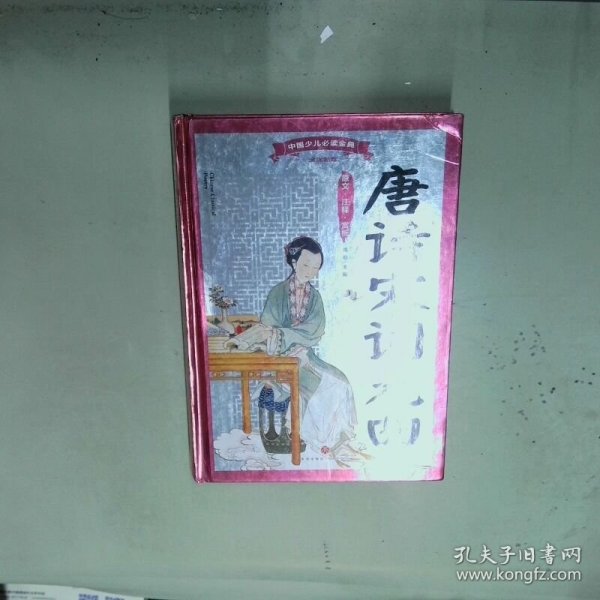 中国少儿必读金典
Chinese Classical
Poetry
原文·注释·赏析
唐诗宋词元曲
孔夫子旧书网
www.kongfz.com